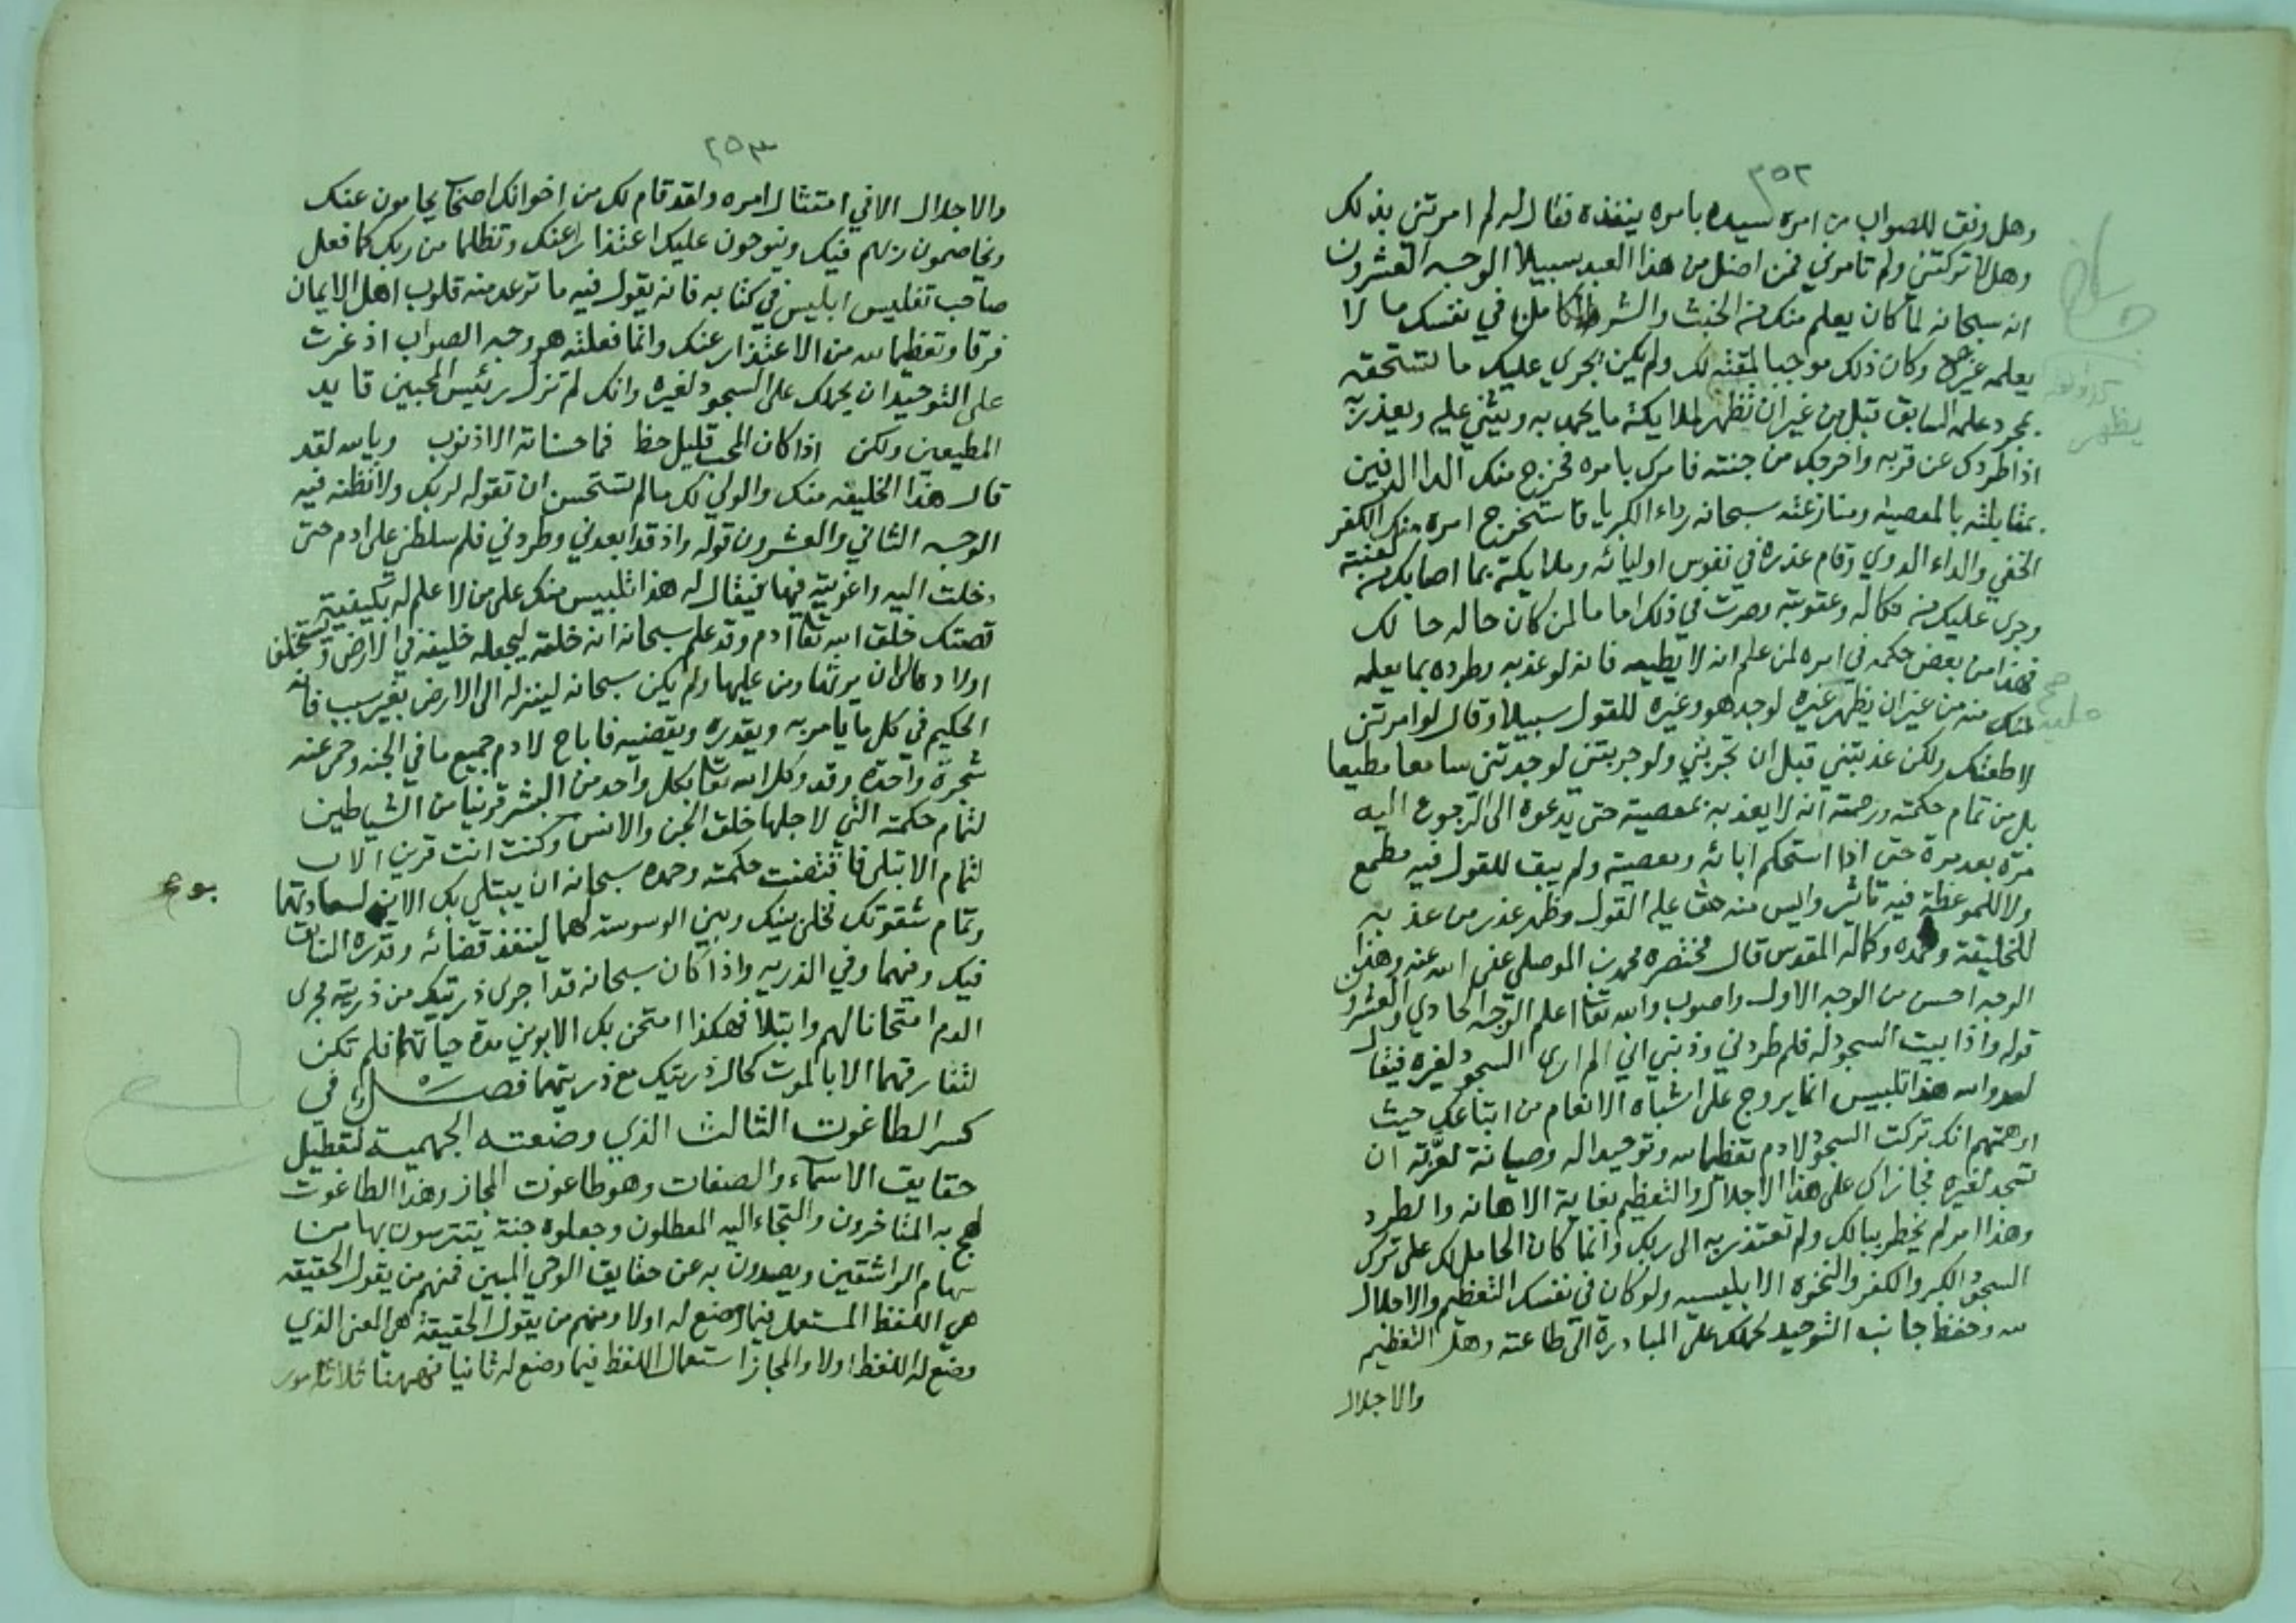 ٢٥٢
وهل وفق للصواب من امره سيده بامره ينفذه فقال له لم امرتني بذلك
وهلا تركتني ولم تامرني فمن اضل من هذا العبد سبيلا الوجه العشرون
انه سبحانه لما كان يعلم منك من الخبث والشر الكامن في نفسك ما لا
يعلمه غيره وكان ذلك موجبا لمقته لك ولم يكن يجري عليك ما تستحقه
بمجرد علمه السابق قبل من غير ان تظهر لملايكته ما يحمد به ويثني عليه ويعذر به
اذا طردك عن قربه واخرجك من جنته فامرك بامره فخرج منك الداء الدفين
بمقابلته بالمعصيه ومنازعته سبحانه رداء الكبريا فاستخرج امره منك الكفر
الخفي والداء الدوي وقام عذره في نفوس اوليائه وملايكته بما اصابك من لعنته
وجرى عليك من نكاله وعقوبته وصرت في ذلك اماما لمن كان حاله حالك
فهذا من بعض حكمه في امره لمن علم انه لا يطيعه فانه لو عذبه وطرده بما يعلمه
منه من غير ان يظهر غيره لوجد هو وغيره للقول سبيلا وقال لو امرتني
لاطعتك ولكن عذبتني قبل ان تجربني ولو جربتني لوجدتني سامعا مطيعا
بل من تمام حكمته ورحمته انه لا يعذبه بمعصيته حتى يدعوه الى الرجوع اليه
مرة بعد مرة حتى اذا استحكم ابائه ومعصيته ولم يبق للقول فيه مطمع
ولا للموعظة فيه تاثير وايس منه حق عليه القول وظهر عذر من عذبه
للخليقة وحمده وكماله المقدس قال مختصره محمد بن الموصلي عفى الله عنه وهذا
الوجه احسن من الوجه الاول واصوب والله تعا اعلم الوجه الحادي والعشرون
قوله واذا ابيت السجود له فلم طردني وذنبي اني لم ارى السجود لغيره فيقال
لعدو الله هذا تلبيس انما يروج على اشباه الانعام من اتباعك حيث
اوهمتهم انك تركت السجود لادم تعظيما لله وتوحيدا له وصيانة لعزته ان
تسجد لغيره فجازاك على هذا الاجلال والتعظيم بغاية الاهانه والطرد
وهذا امر لم يخطر ببالك ولم تعتذر به الى ربك وانما كان الحامل لك على ترك
السجود الكبر والكفر والنخوة الابليسيه ولو كان في نفسك التعظيم والاجلال
لله وحفظ جانب التوحيد لحملك على المبادرة الى طاعته وهل التعظيم
والاجلال
يظهر
٢٥٣
والاجلال الا في امتثال امره ولقد قام لك من اخوانك اصحاب يحامون عنك
ويخاصمون ربهم فيك وينوحون عليك اعتذارا عنك وتظلما من ربك كما فعل
صاحب تفليس ابليس في كتابه فانه يقول فيه ما ترعد منه قلوب اهل الايمان
فرقا وتعظيما لله من الاعتذار عنك وانما فعلته هو وجه الصواب اذ غرت
على التوحيد ان يحملك على السجود لغيره وانك لم تزل رئيس المحبين قايد
المطيعين ولكن اذا كان المحب قليل حظ فما حسناته الا ذنوب وبالله لقد
قال هذا الخليفه منك والولي لك ما لم تستحسن ان تقوله لربك ولا تظنه فيه
الوجه الثاني والعشرون قوله واذ قد ابعدني وطردني فلم سلطني على ادم حتى
دخلت اليه واغويته فيها فيقال له هذا تلبيس منك على من لا علم له بكيفية
قصتك خلق الله تعا ادم وقد علم سبحانه انه خلقه ليجعله خليفه في الارض ويستخلف
اولاده الى ان يرثها ومن عليها ولم يكن سبحانه لينزله الى الارض بغير سبب فانه
الحكيم في كل ما يامر به ويقدره ويقضيه فاباح لادم جميع ما في الجنه وحمى عنه
شجرة واحدة وقد وكل الله تعا بكل واحد من البشر قرينا من الشياطين
لتمام حكمته التي لاجلها خلق الجن والانس وكنت انت قرين الاب
لتمام الابتلى فاقتضت حكمته وحمده سبحانه ان يبتلي بك الابوين لسعادتهما
وتمام شقوتك فخلى بينك وبين الوسوسه لهما لينفذ قضائه وقدره السابق
فيك وفيهما وفي الذريه واذا كان سبحانه قد اجرى ذريتك من ذريته مجرى
الدم امتحانا لهم وابتلا فهكذا امتحن بك الابوين مدة حياتهما فلم تكن
لتفارقهما الا بالموت كحال ذريتك مع ذريتهما فصل في
كسر الطاغوت الثالث الذي وضعته الجهمية لتعطيل
حقايق الاسماء والصفات وهو طاغوت المجاز وهذا الطاغوت
لهج به المتاخرون والتجاء اليه المعطلون وجعلوه جنة يتترسون بها من
سهام الراشقين ويصدون به عن حقايق الوحي المبين فمنهم من يقول الحقيقه
هي اللفظ المستعمل فيما وضع له اولا ومنهم من يقول الحقيقة هي المعنى الذي
وضع له اللفظ اولا والمجاز استعمال اللفظ فيما وضع له ثانيا فههنا ثلاثة امور